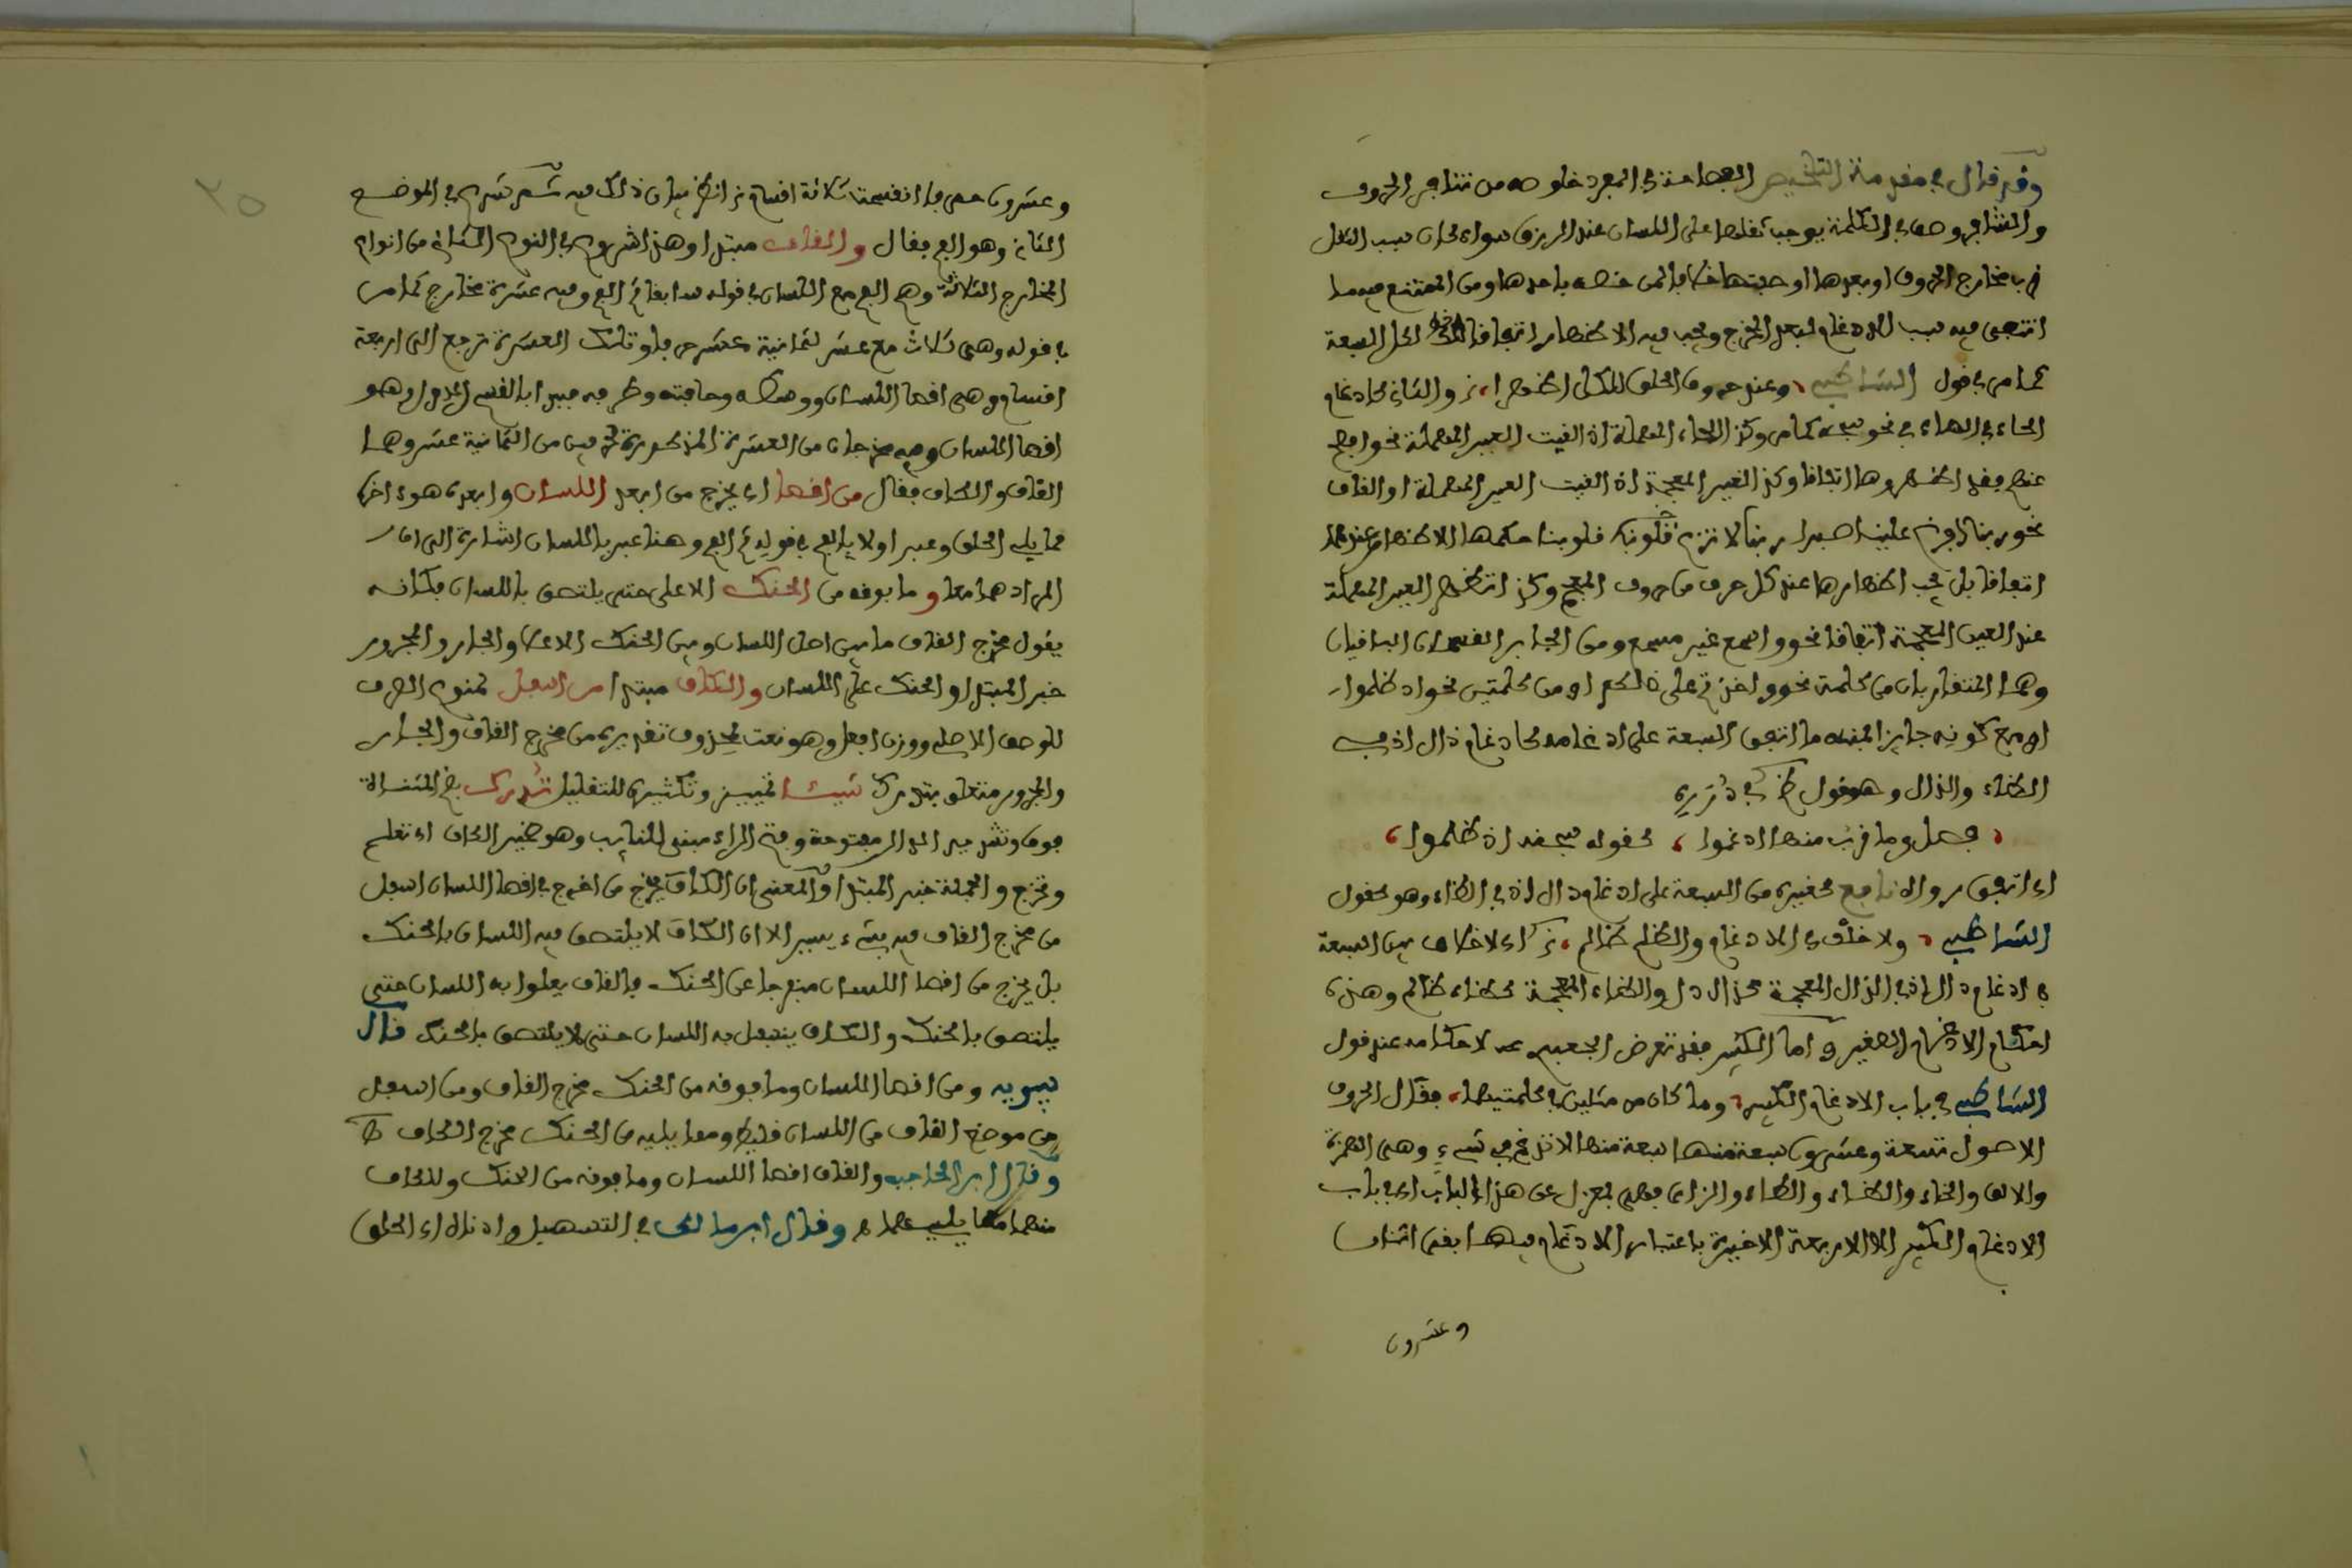 وقد قال في مقدمة التلخيص الفصاحة في المفرد خلوصه من تنافر الحروف
والتنافر وصف في الكلمة يوجب ثقلها على اللسان عند المريدين سواء كان سبب الثقل
قرب مخارج الحروف او بعدها او صفتها خلافا لمن خصه باحدها ومن الممتنع فيه ما
انتهى فيه سبب الادغام لبعد المخرج ويجب فيه الاظهار اتفاقا لكل السبعة
كما مر في قول الشاطبي وعند حروف الحلق للكل اظهرا والثاني كادغام
الحاء في الهاء في نحو سبحه كما مر وكذا الحاء المهملة اذا لقيت العين المهملة نحو اصفح
عنهم فقد اظهروها اتفاقا وكذا الغين المعجمة اذا لقيت العين المهملة او القاف
نحو ربنا افرغ علينا صبرا ربنا لا تزغ قلوبنا حكمها الاظهار عندهما
اتفاقا بل يجب اظهارها عند كل حرف من حروف المعجم وكذا اتظهر العين المهملة
عند الغين المعجمة اتفاقا نحو واسمع غير مسمع ومن الجايز القسمان الباقيان
وهما المتقاربان من كلمة نحو واخذتم على ذالكم او من كلمتين نحو اذ ظلموا
او مع كونه جايزا فمنه ما اتفق السبعة على ادغامه كادغام ذال اذ في
الظاء والذال وهو قول
فصل وما قرب منها ادغموا كقوله سبحانه اذ ظلموا
اي اتفق رواة نافع كغيره من السبعة على ادغام ذال اذ في الظاء وهو كقول
الشاطبي ولا خلف في الادغام والظلم ظالم اي لا خلاف بين السبعة
في ادغام ذال اذ في الذال المعجمة كذال ذل والظاء المعجمة كظاء ظالم وهذه
احكام الادغام الصغير واما الكبير فقد تعرض الجعبري لاحكامه عند قول
الشاطبي في باب الادغام الكبير وما كان من مثلين في كلمتيهما فقال الحروف
الاصول تسعة وعشرون سبعة منها لا تدغم في شيء وهي الهمزة
والالف والخاء والظاء والطاء والزاي فهي بمعزل عن هذا الباب اي باب
الادغام الكبير الا الاربعة الاخيرة باعتبار الادغام فيها بقي اثنان
وعشرون
٢٥
وعشرون حرفا انقسمت ثلاثة اقسام انظر بيان ذلك فيه ثم شرع في الموضع
الثاني وهو الفم فقال والقاف مبتدا وهذا شروع في النوع الثاني من انواع
المخارج الثلاثة وهو الفم مع اللسان في قوله سابقا ثم الفم وفيه عشرة مخارج كما مر
في قوله وهي ثلاث مع عشر لثمانية عشر حرفا وتلك العشرة ترجع الى اربعة
اقسام وهي اقصا اللسان ووسطه وحافته وطرفه فبدا بالقسم الاول وهو
اقصا اللسان وفيه مخرجان من العشرة المذكورة لحرفين من الثمانية عشر وهما
القاف والكاف فقال من اقصا اي يخرج من ابعد اللسان وابعده هو اخره
مما يلي الحلق وعبر اولا بالفم في قوله ثم الفم وهنا عبر باللسان اشارة الى ان
المراد هما معا وما بوقه من الحنك الاعلى حتى يلتصق باللسان فكانه
يقول مخرج القاف ما بين اصل اللسان وبين الحنك الاعلا والجار والمجرور
خبر المبتدا والحنك على اللسان والكاف مبتدا من اسفل ممنوع الصرف
للوصف الاصلي ووزن افعل وهو نعت لمحذوف تقديره من مخرج القاف والجار
والمجرور متعلق بتدرك شيئا تمييز وتكثيره للتقليل تدرك بضم المثناة
فوق وتشديد الدال مفتوحة وفتح الراء مبني للنايب وهو ضمير الكاف اي تعلم
وتخرج والجملة خبر المبتدا والمعنى ان الكاف يخرج من اخرج في اقصا اللسان اسفل
من مخرج القاف فيه بشيء يسير الا ان الكاف لا يلتصق فيه اللسان بالحنك
بل يخرج من اقصا اللسان منفرجا عن الحنك فالقاف يعلوا به اللسان حتى
يلتصق بالحنك والكاف ينسفل به اللسان حتى لا يلتصق بالحنك قال
سيبويه ومن اقصا اللسان وما فوقه من الحنك مخرج القاف ومن اسفل
من موضع القاف من اللسان قليلا ومما يليه من الحنك مخرج الكاف
وقال ابن الحاجب والقاف اقصا اللسان وما فوقه من الحنك وللكاف
منهما ما يليهما وقال ابن مالك في التسهيل وادناه اي الحلق